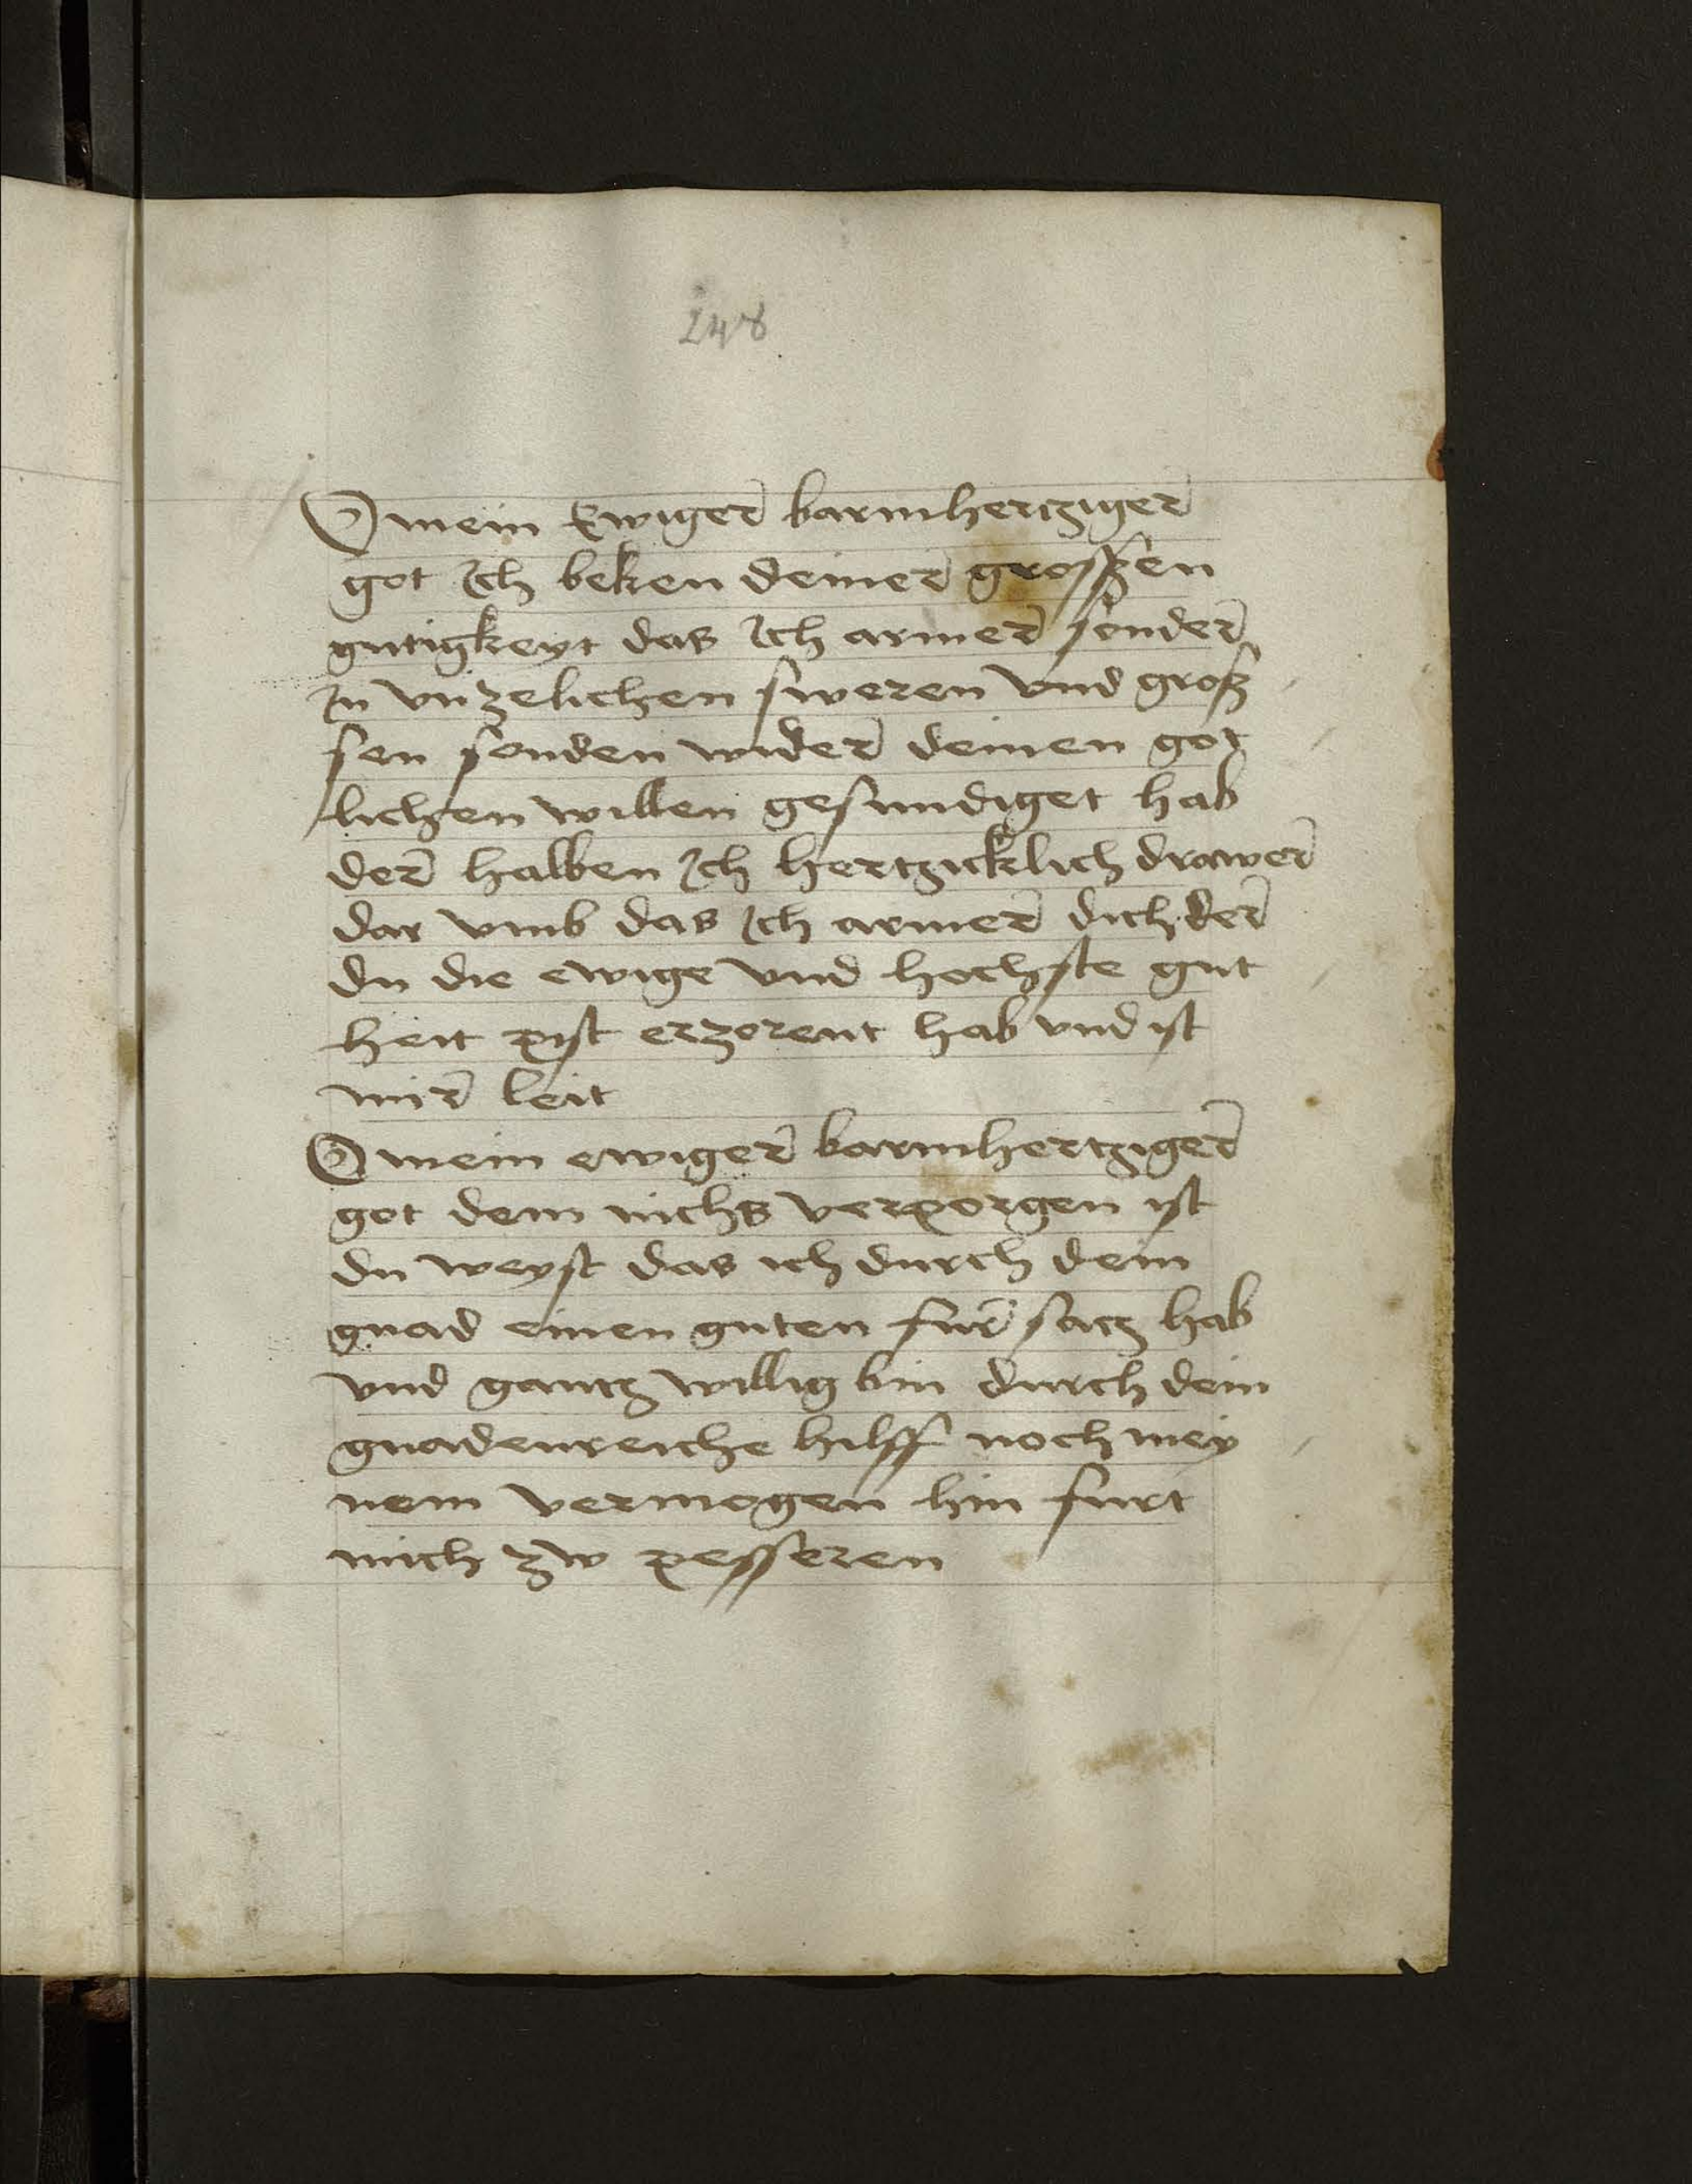 248
O mein Ewiger barmhertziger
got Ich beken deiner grossen
gutigkeyt das Ich armer sonder
In vnzelichen sweren vnd groß
sen sonden wider deinen got
lichen willen gesundiget hab
der halben Ich hertzicklich drawer
dar vmb das Ich armer dich der
du die ewige vnd hochste gut
heit pist erzorent hab vnd ist
mir leit
O mein ewiger barmhertziger
got dem nichs verporgen ist
du weyst das ich durch dein
gnad einen guten fur satz hab
vnd gantz willig bin durch dein
gnadenreiche hilff noch mey
nem vermogen hin furt
mich zw pesseren